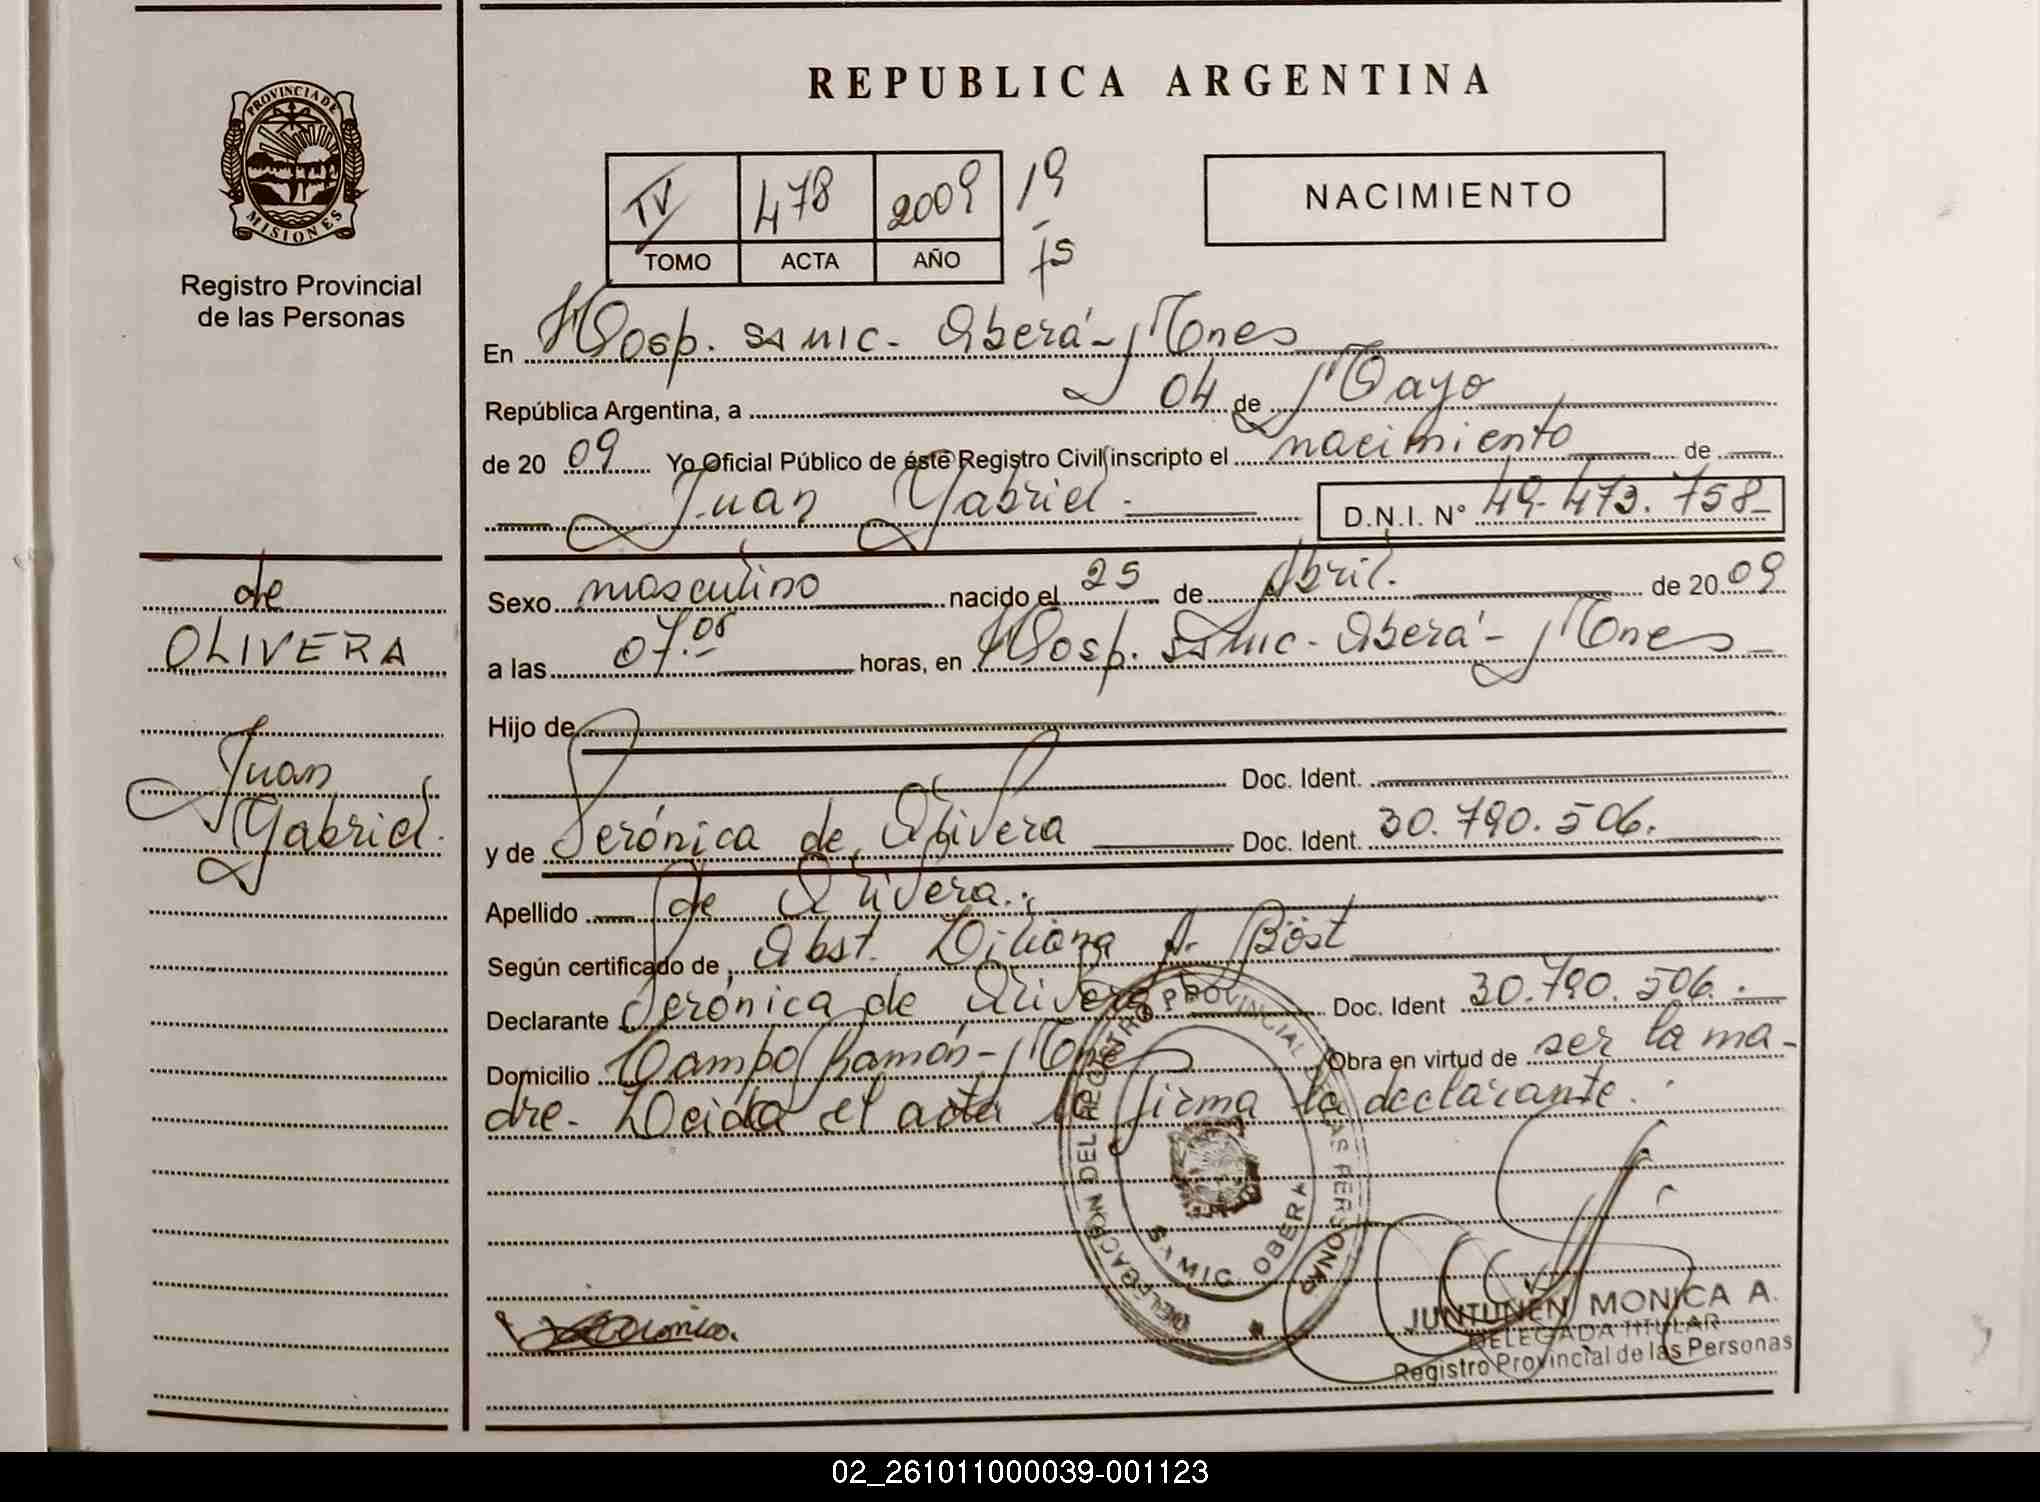 REPUBLICA ARGENTINA
PROVINCIA DE
MISIONES
Registro Provincial
de las Personas
IV 478 2009 19
TOMO ACTA AÑO
NACIMIENTO
En Hosp. SAMIC - Oberá - Mnes
República Argentina, a 04 de Mayo
de 20 09 Yo Oficial Público de éste Registro Civil inscripto el nacimiento de
Juan Gabriel. D.N.I. N° 49.473.758
de
OLIVERA
Juan
Gabriel.
Sexo masculino nacido el 25 de Abril. de 20 09
a las 07.05 horas, en Hosp. SAMIC - Oberá - Mnes
Hijo de
Doc. Ident.
y de Verónica de Olivera Doc. Ident. 30.790.506.
Apellido de Olivera.
Según certificado de Obst. Liliana A. Böst
Declarante Verónica de Olivera Doc. Ident 30.790.506.
Domicilio Campo Ramón - Mnes Obra en virtud de ser la ma-
dre. Leida el acta la firma la declarante.
DELEGACION DEL REGISTRO PROVINCIAL DE LAS PERSONAS
SAMIC OBERA
JUNTUNEN MONICA A.
DELEGADA TITULAR
Registro Provincial de las Personas
02_261011000039-001123